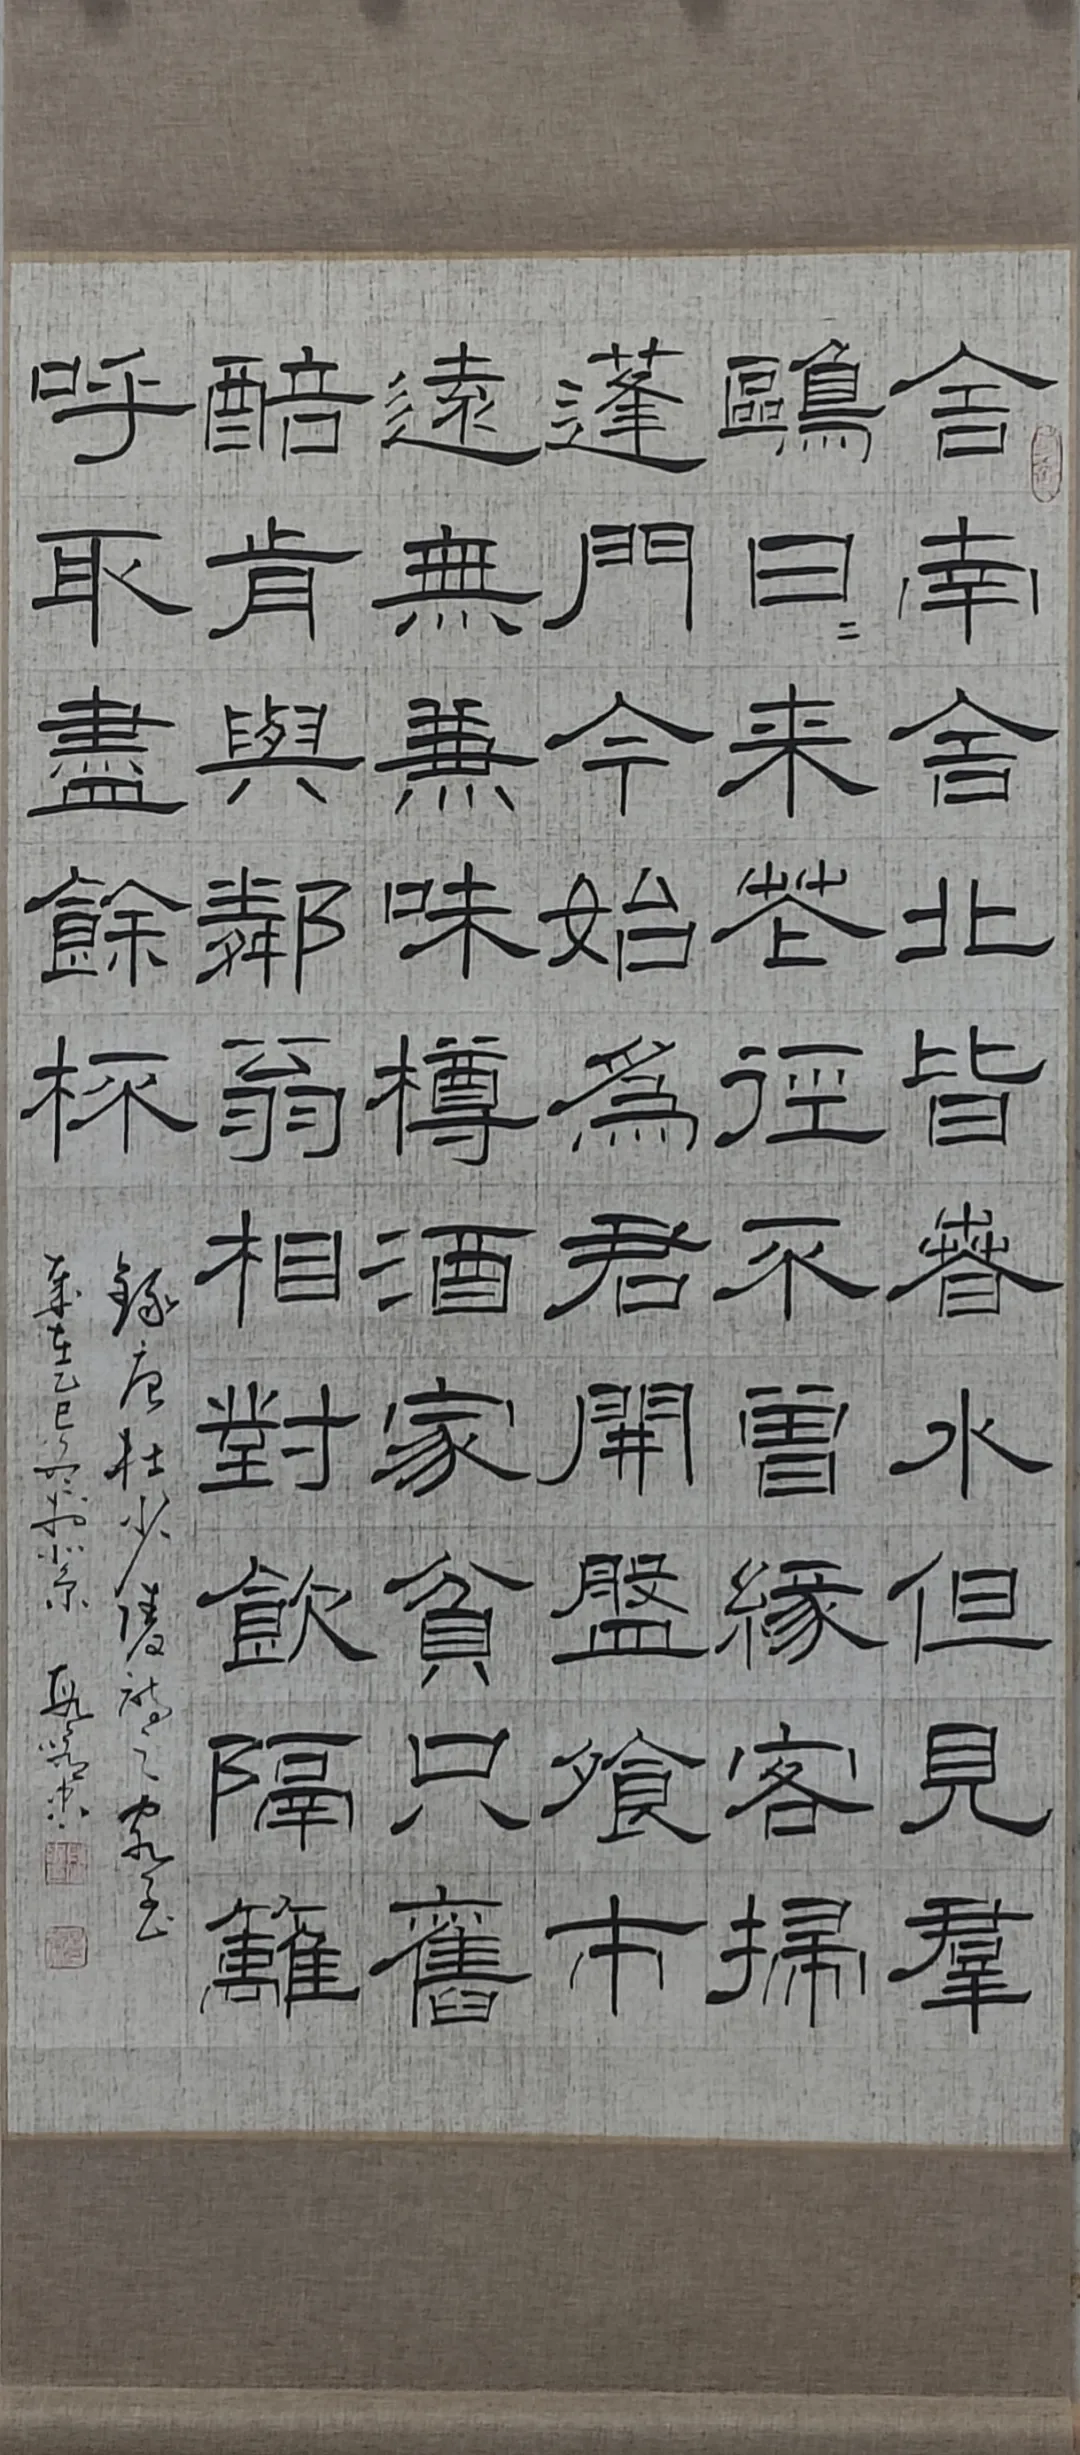 舍南舍北皆春水但見羣
鷗日〻来花徑不曾緣客掃
蓬門今始為君開盤飱市
遠無兼味樽酒家貧只舊
醅肯與鄰翁相對飲隔籬
呼取盡餘杯
錄唐杜少陵詩之客至
歲在乙巳